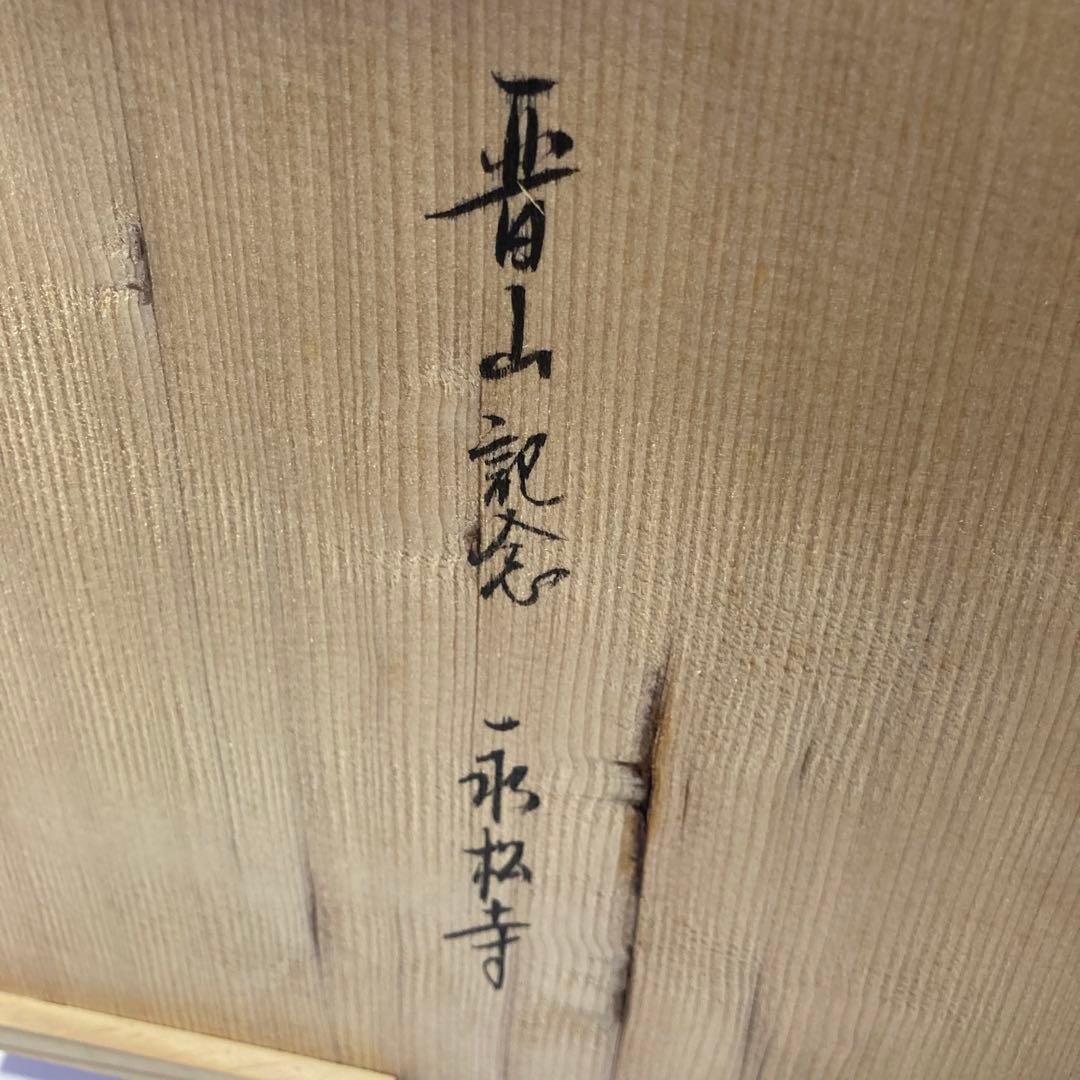 晋山記念 永松寺